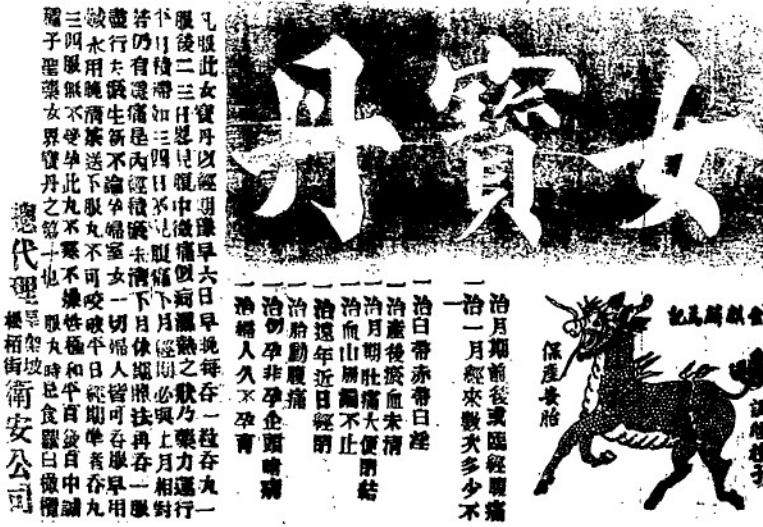 女寶丹
麒麟為記
調經種子
保產安胎
一治月期前後或臨經腹痛
一治一月經來數次多少不
一治白帶赤帶白淫
一治產後瘀血未清
一治月期肚痛大便閉結
一治血山崩漏不止
一治遠年近日經閉
一治胎動腹痛
一治婦人久不孕育
凡服此女寶丹以經期讓早六日早晚每吞一粒吞丸一
服後二三日間見腹中微痛似痾濕熱之狀乃藥力運行
積滯如三四日不見腹痛下月經期必與上月相對
若仍有痛是內經積瘀未清下月依期照法再吞一服
盡行去瘀生新不論孕婦室女一切婦人皆可吞服早用
永用晚清茶送下服丸不可咬破平日經期準者吞丸
三四服無不受孕此丸不寒不燥性極和平百發百中誠
種子聖藥女界寶丹之第一也 服丸時忌食蘿白橄欖
總代理 星架坡 松栢街 衛安公司